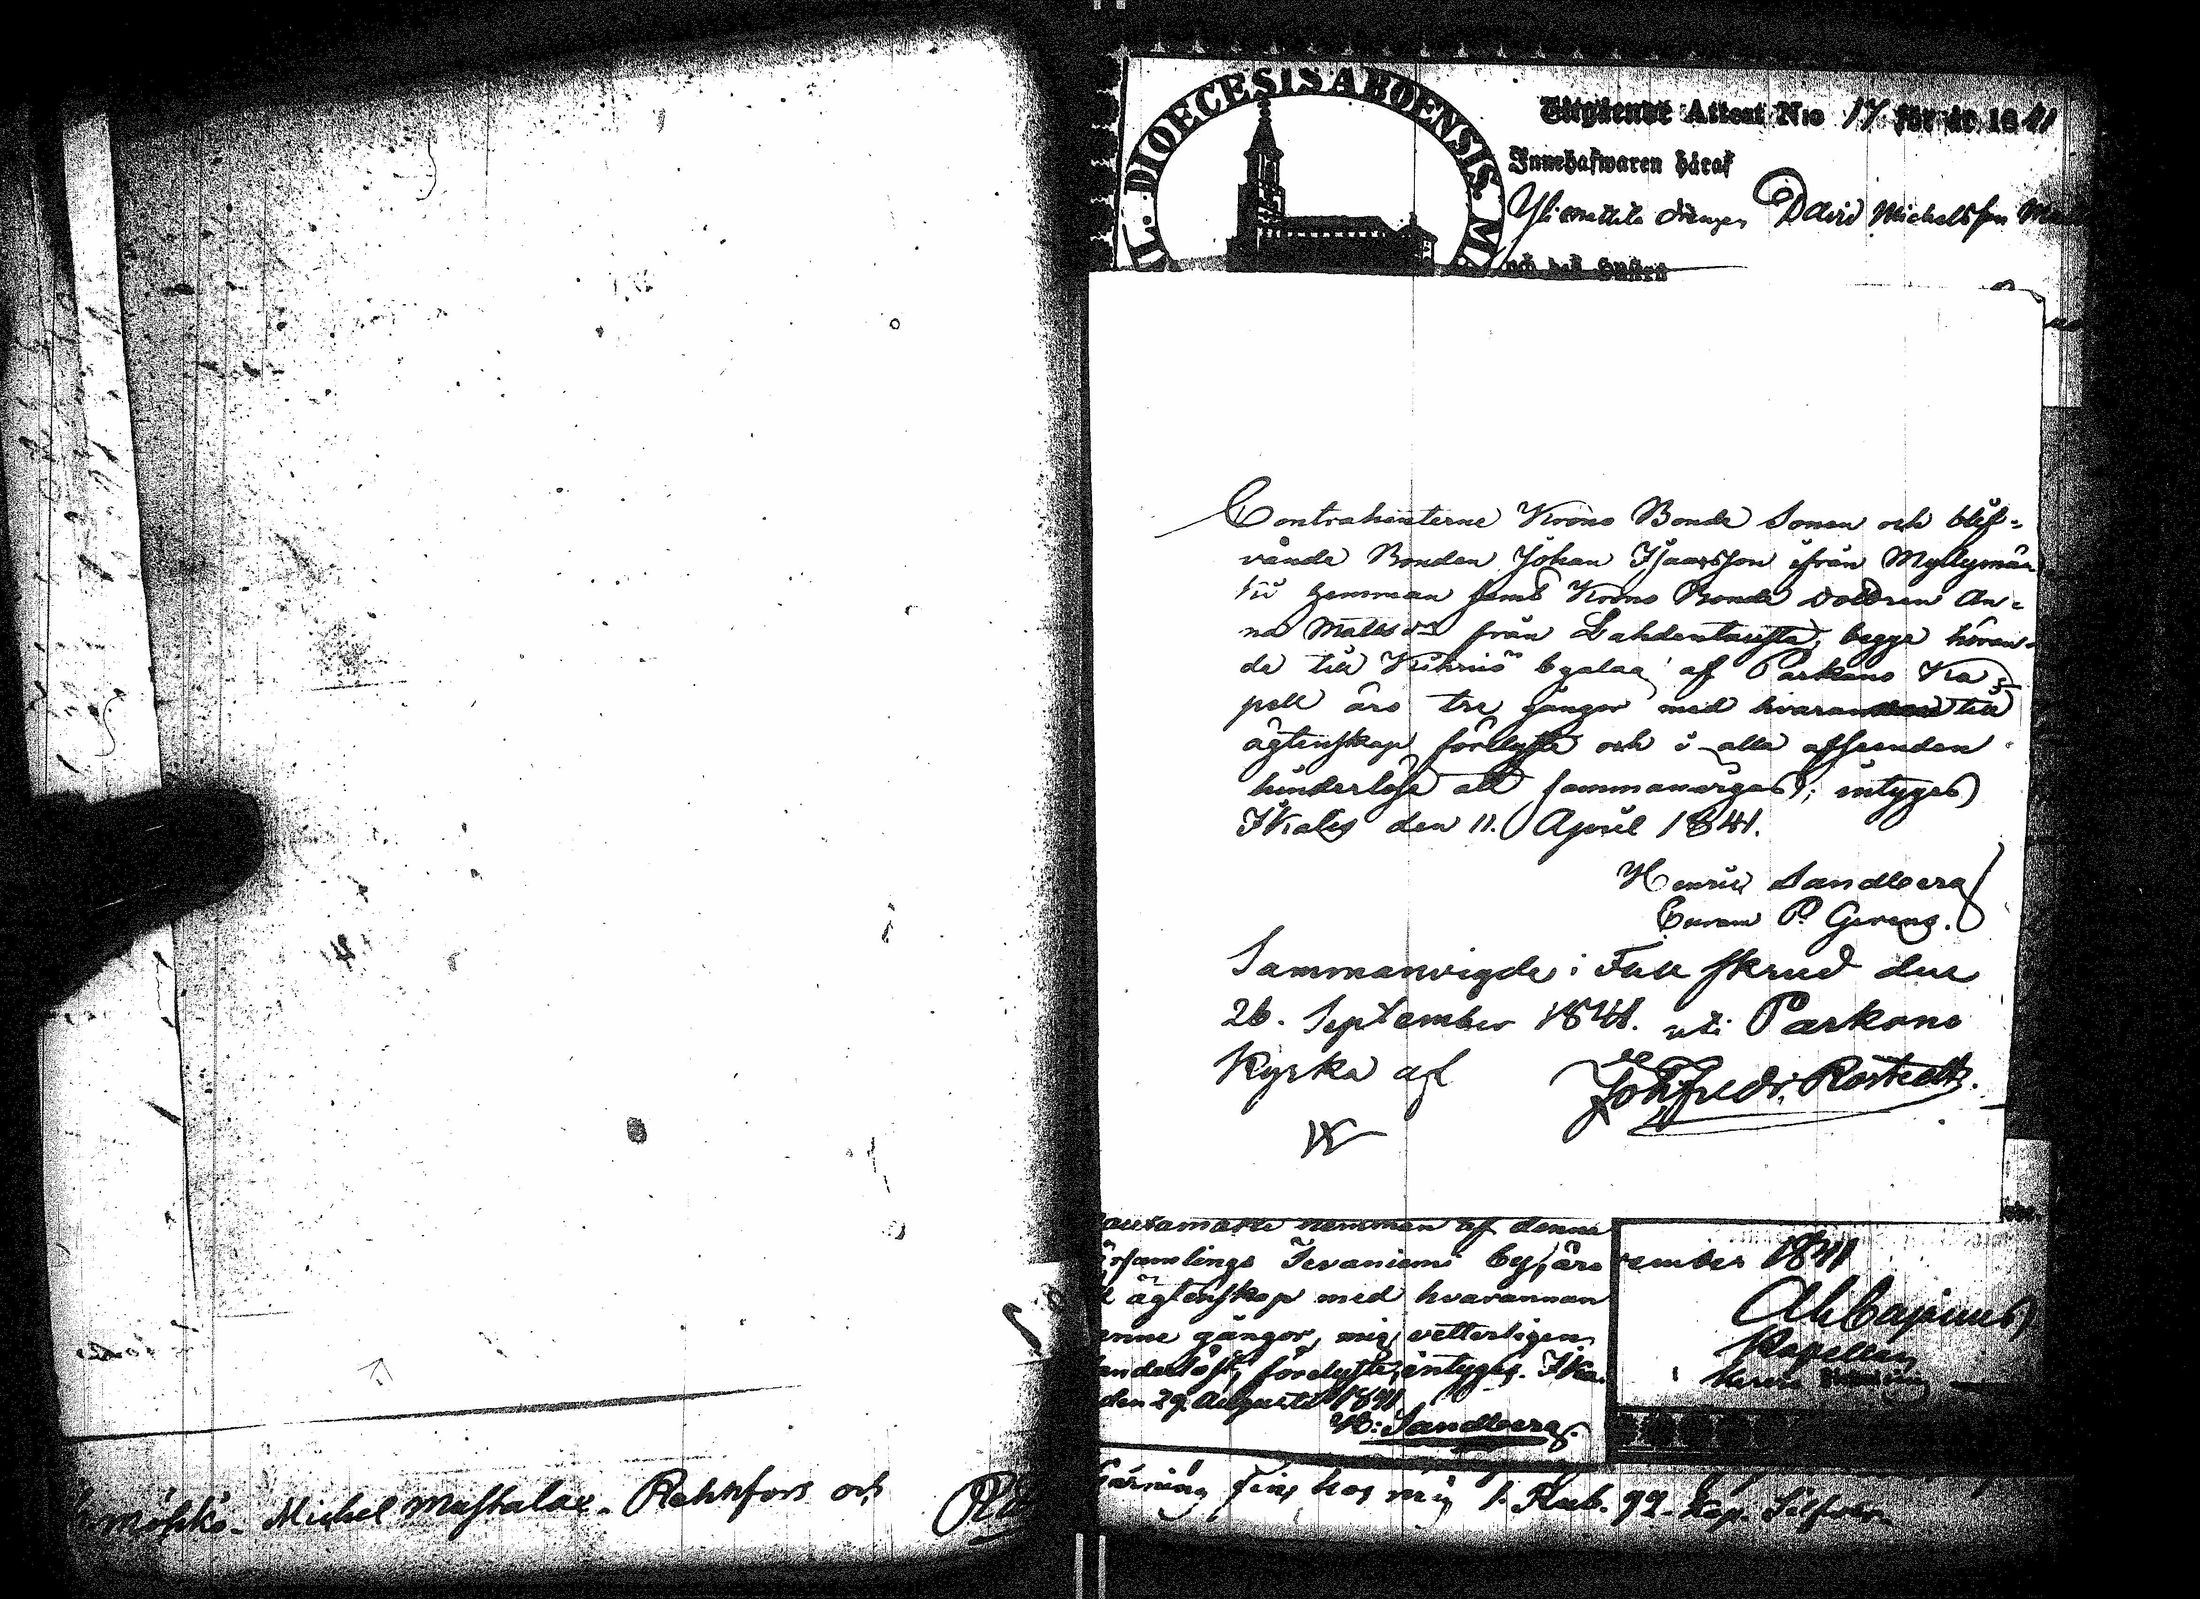 SIGIL. DIOECESIS ABOENSIS M
Utgifwet Attest N:o 17 för år 1841
Innehafwaren häraf
Yli Mattila drengen David Michelsson
och des Hustru
Contrahenterne Krono Bonde Sonen och blif-
vande Bonden Johan Isaacsson ifrån Myllymäe
hemman samt Krono Bonde dottren An-
na Matts dr från Lahdentausta, begge höran-
de till Kihniö byalag af Parkano Ka-
pell äro tre gångor med hvarannan till
ägtenskap förelyste och i alla afseenden
hinderlöse att sammanvigas; intygas
Ikalis den 11. April 1841.
Henric Sandberg
Curam P. Gerens.
Sammanvigde i Full skrud den
26. September 1841. uti Parkano
Kyrka af Joh Fredr. Rostedt.
hemman af denne
församlings Jevaniemi by, äro
ägtenskap med hvarannan
gångor, mig vetterligen
förelyste, intygas. Ika.
den 29. Augusti 1841
H: Sandberg.
ember 1841
Kapellan
möhkö - Michel Mustalax - Rehnfors och
hos mig 1. Rub. 92. kop. Silfver